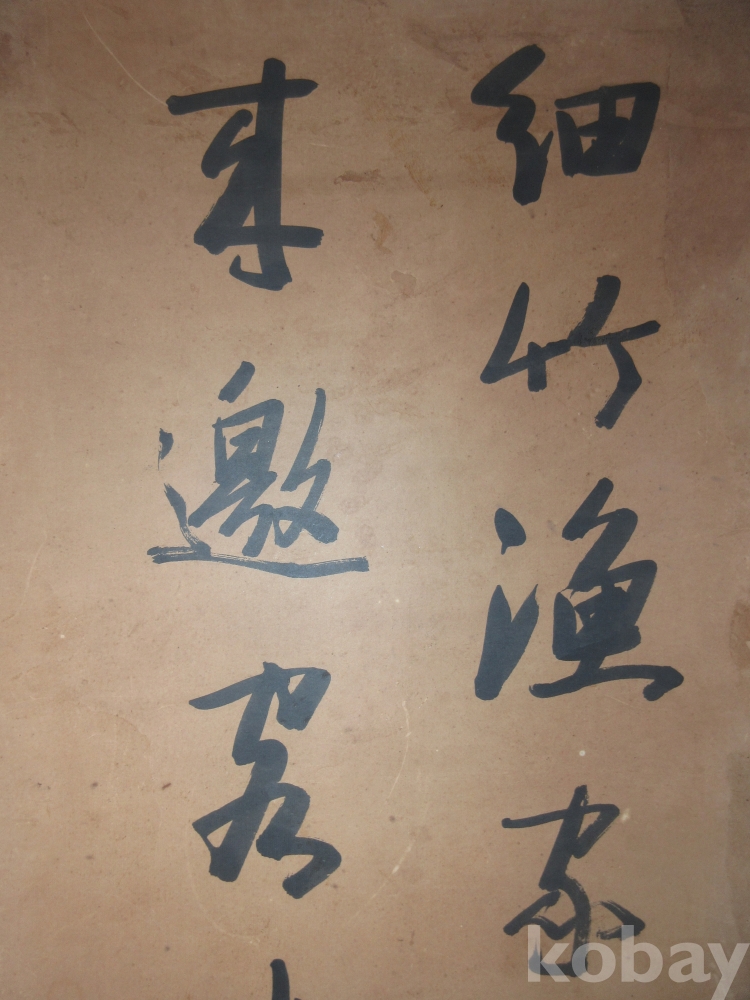 細竹漁家
来邀客
kobay